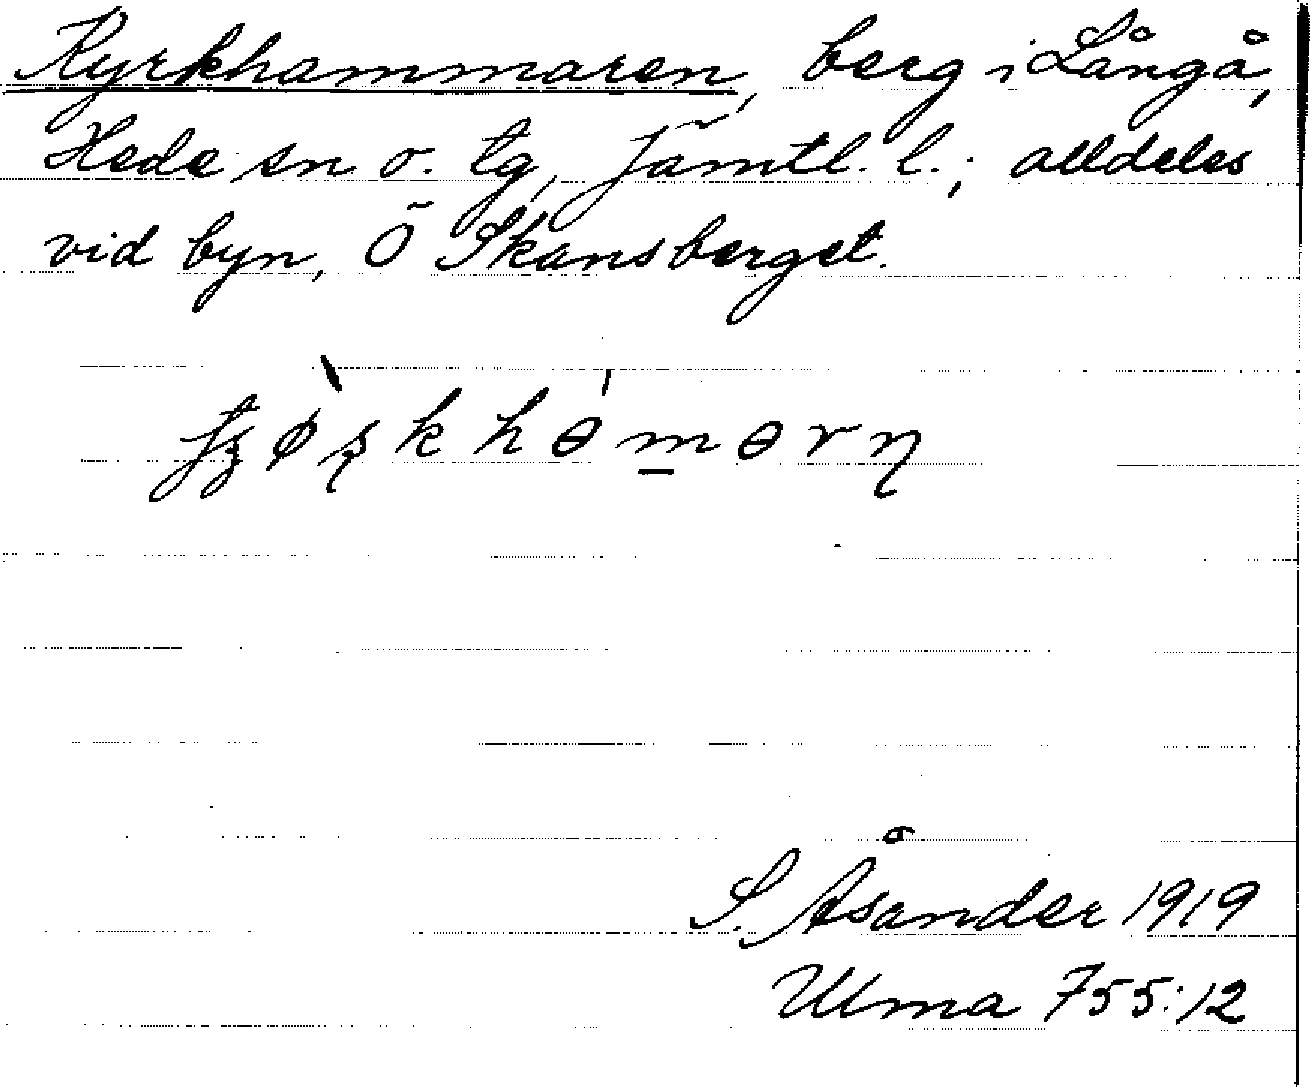 Kyrkhammaren, berg i Långå,
Hede sn o. tg, Jämtl. l.; alldeles
vid byn, Ö Skansberget.
S. Åsander 1919
Ulma 755:12